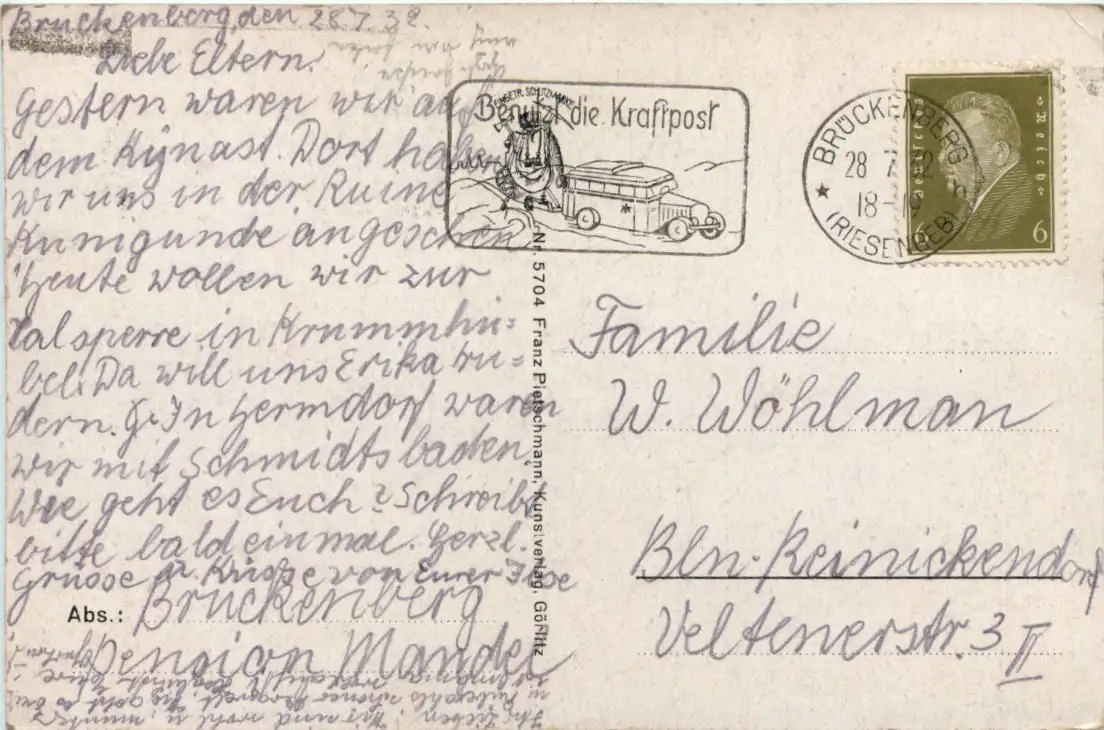 Brückenberg, den 28.7.32.
Liebe Eltern!
Gestern waren wir auf
dem Kynast. Dort haben
wir uns in der Ruine
Kunigunde angesehen
Heute wollen wir zur
Talsperre in Krummhü=
bel. Da will uns Erika ru=
dern. In Hermdorf waren
wir mit Schmidts baden.
Wie geht es Euch? Schreibt
bitte bald einmal. Herzl.
Grüsse u. Küsse von Eurer Ilse
Abs.: Brückenberg
Pension Mandel
EINGETR. SCHUTZMARKE
Benutzt die Kraftpost
BRÜCKENBERG
28 7 32
18-19 h
(RIESENGEB)
Deutsches Reich
6 6
Nr. 5704 Franz Pietschmann, Kunstverlag, Görlitz
Familie
W. Wöhlman
Bln.-Reinickendorf
Veltenerstr. 3 II